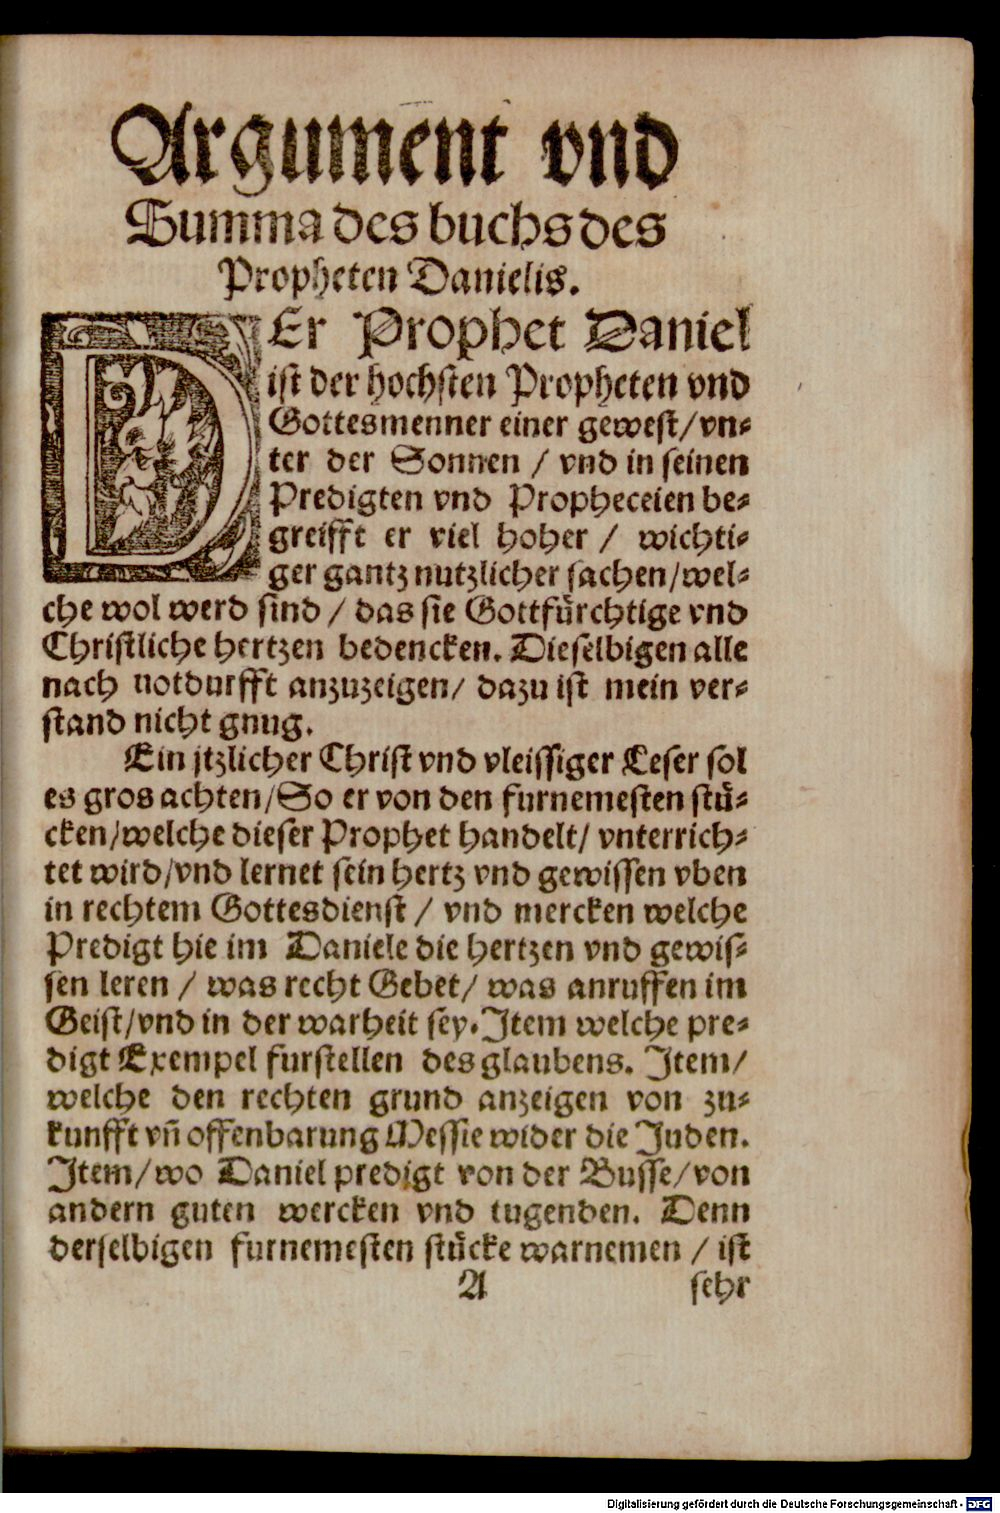 Argument vnd
Summa des buchs des
Propheten Danielis.
DEr Prophet Daniel
ist der hochsten Propheten vnd
Gottesmenner einer gewest/ vn⸗
ter der Sonnen / vnd in seinen
Predigten vnd Propheceien be⸗
greifft er viel hoher / wichti⸗
ger gantz nutzlicher sachen/ wel⸗
che wol werd sind / das sie Gottfürchtige vnd
Christliche hertzen bedencken. Dieselbigen alle
nach notdurfft anzuzeigen/ dazu ist mein ver⸗
stand nicht gnug.
Ein jtzlicher Christ vnd vleissiger Leser sol
es gros achten/ So er von den furnemesten stü⸗
cken/ welche dieser Prophet handelt/ vnterrich⸗
tet wird/ vnd lernet sein hertz vnd gewissen vben
in rechtem Gottesdienst / vnd mercken welche
Predigt hie im Daniele die hertzen vnd gewis⸗
sen leren / was recht Gebet/ was anruffen im
Geist/ vnd in der warheit sey. Item welche pre⸗
digt Exempel furstellen des glaubens. Item/
welche den rechten grund anzeigen von zu⸗
kunfft vn̄ offenbarung Messie wider die Juden.
Item/ wo Daniel predigt von der Busse/ von
andern guten wercken vnd tugenden. Denn
derselbigen furnemesten stücke warnemen / ist
A sehr
Digitalisierung gefördert durch die Deutsche Forschungsgemeinschaft - DFG